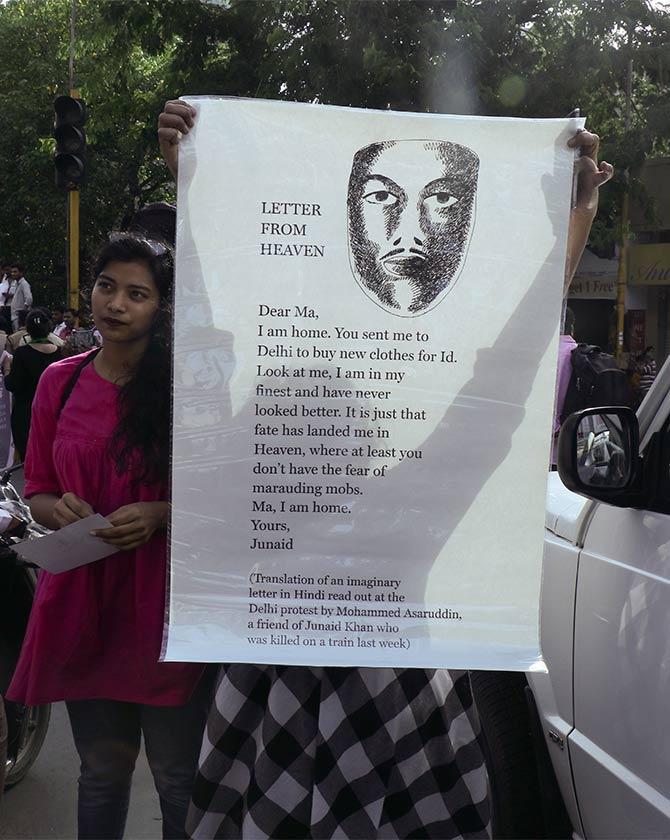 LETTER
FROM
HEAVEN
Dear Ma,
I am home. You sent me to
Delhi to buy new clothes for Id.
Look at me, I am in my
finest and have never
looked better. It is just that
fate has landed me in
Heaven, where at least you
don't have the fear of
marauding mobs.
Ma, I am home.
Yours,
Junaid
(Translation of an imaginary
letter in Hindi read out at the
Delhi protest by Mohammed Asaruddin,
a friend of Junaid Khan who
was killed on a train last week)
get 1 Free